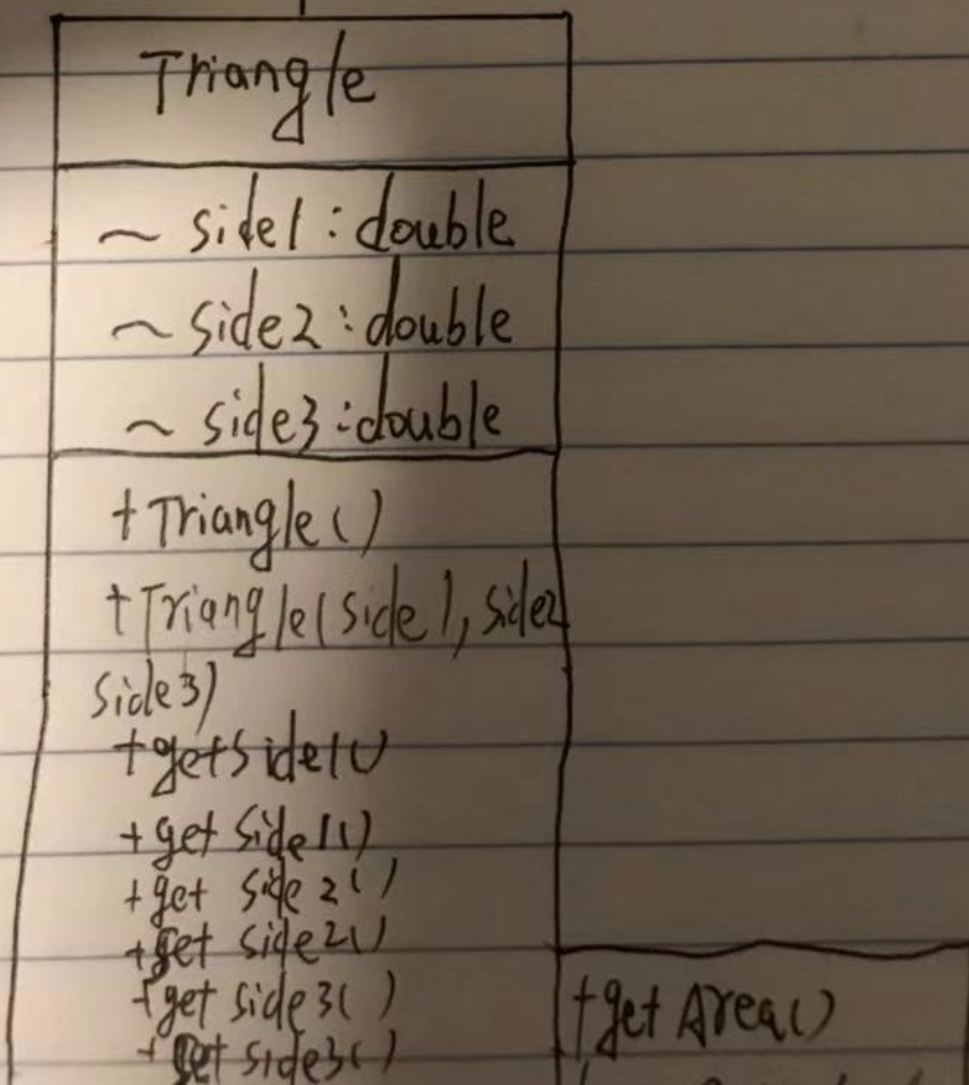 Triangle
~ side1 : double
~ side2 : double
~ side3 : double
+ Triangle()
+ Triangle(side1, side2
side3)
+ getside1()
+ get side1()
+ get side2()
+ get side2()
+ get side3()
+ set side3()
+ get Area()